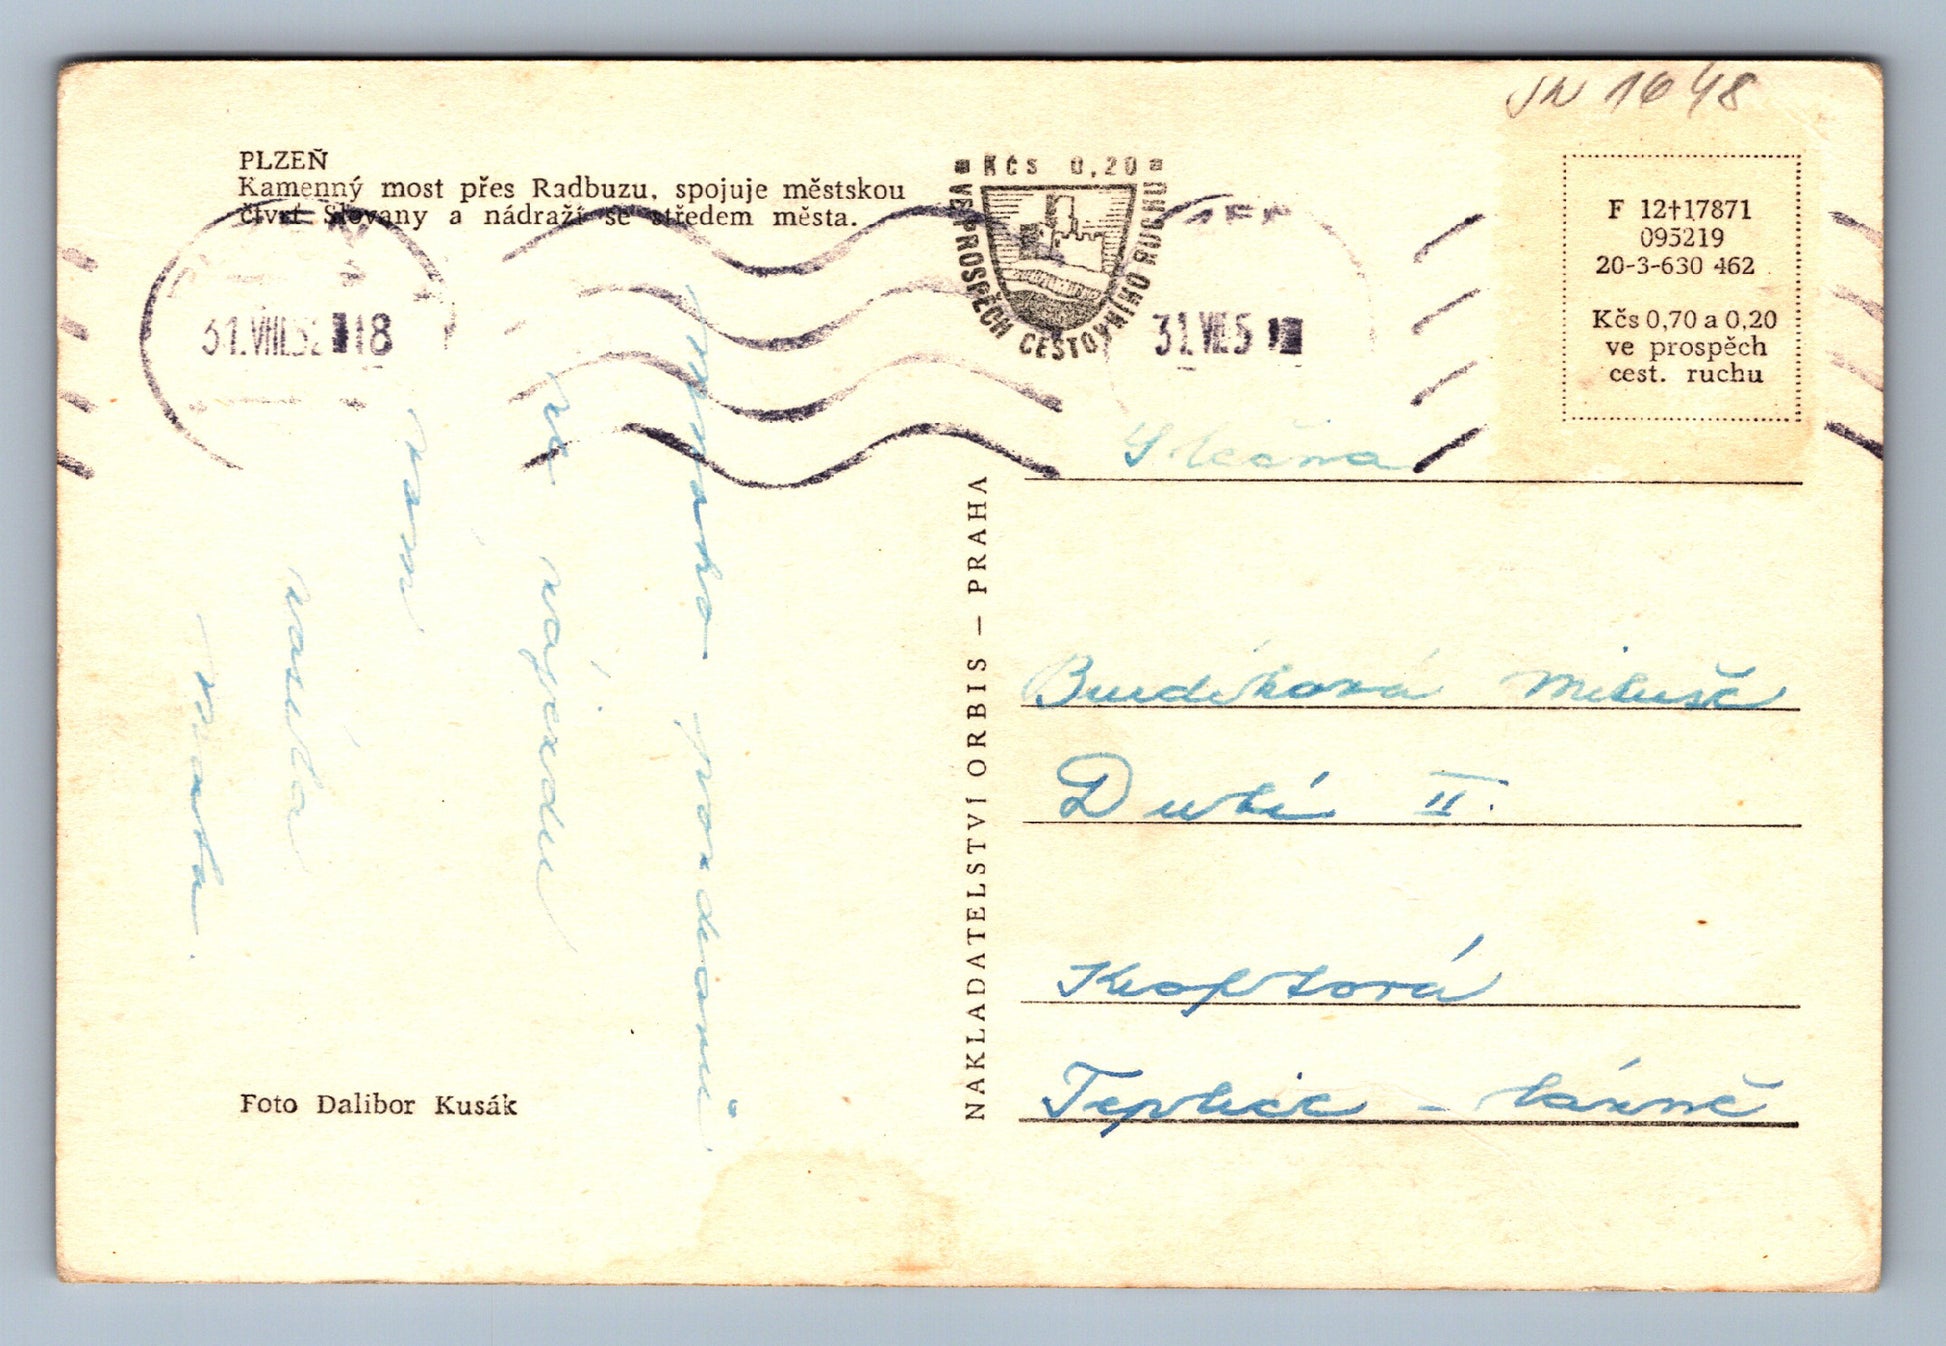 JN 1648
PLZEŇ
Kamenný most přes Radbuzu, spojuje městskou
čtvrť Slovany a nádraží se středem města.
Kčs 0,20
VE PROSPĚCH CESTOVNÍHO RUCHU
31.VIII.52 18
31.VIII.5
F 12†17871
095219
20-3-630 462
Kčs 0,70 a 0,20
ve prospěch
cest. ruchu
Mnoho pozdravů
z výjezdu
vám
zasílá
NAKLADATELSTVÍ ORBIS – PRAHA
Slečna
Burdíková Miluše
Dubí II.
Teplice - lázně
Foto Dalibor Kusák